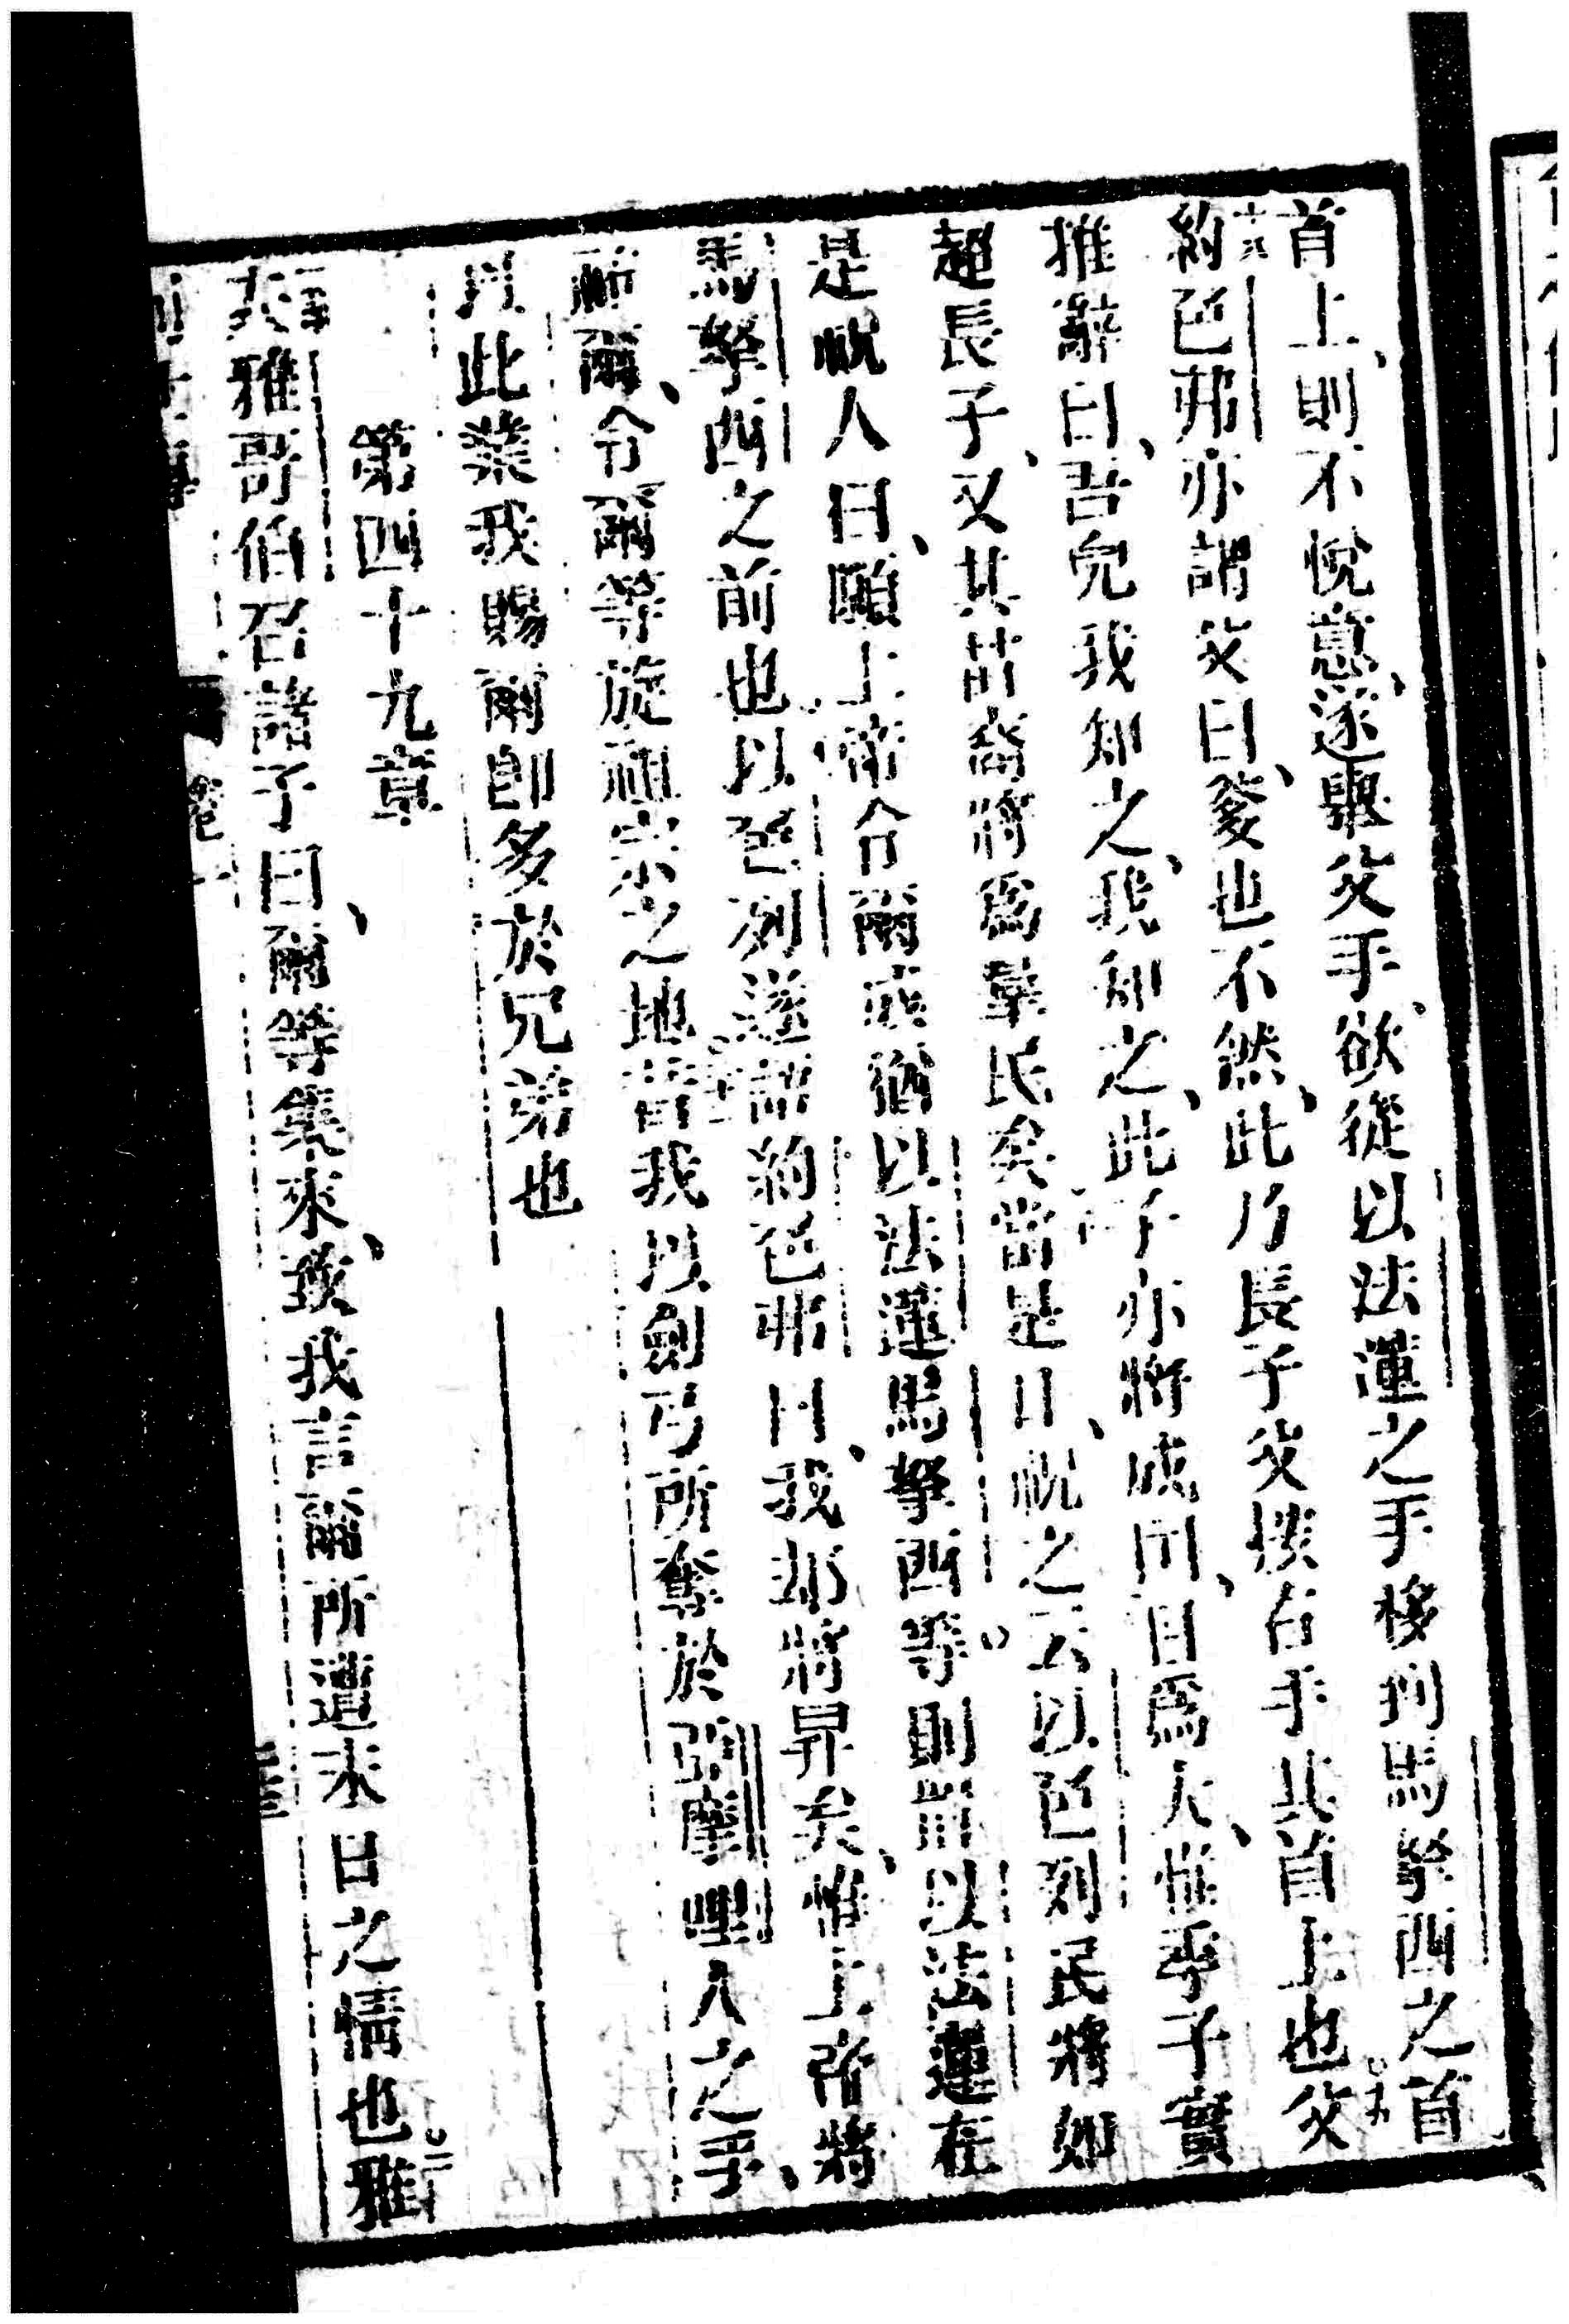 首上、則不悅意、遂舉父手、欲從以法蓮之手移到馬拏西之首
約色弗亦謂父曰、爹也不然、此乃長子父按右手其首上也父
推辭曰、吾兒我知之、我知之、此子亦將成門、且爲大、惟季子實
超長子、又其苗裔將爲羣民矣當是日、祝之云以色列民將如
是祝人曰、願上帝令爾成猶以法蓮馬拏西等則置以法蓮在
馬拏西之前也以色列遂語約色弗曰、我耶將昇矣、惟上帝將
祐爾、令爾等旋祖宗之地昔我以劍弓所奪於亞摩哩人之手、
只此業我賜爾卽多於兄弟也
第四十九章
夫雅哥伯召諸子曰、爾等集來、致我言爾所遭末日之情也雅